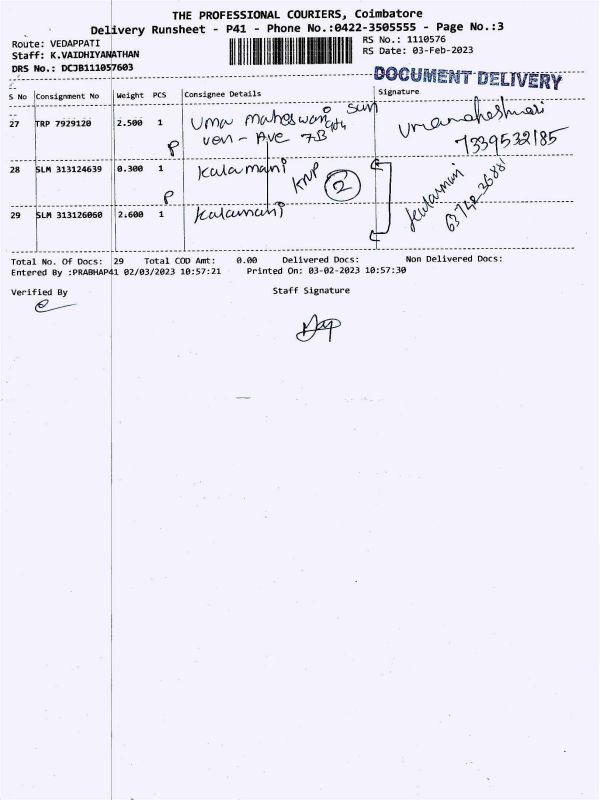 THE PROFESSIONAL COURIERS, Coimbatore
Delivery Runsheet - P41 - Phone No.:0422-3505555 - Page No.:3
Route: VEDAPPATI RS No.: 1110576
Staff: K.VAIDHIYANATHAN RS Date: 03-Feb-2023
DRS No.: DCJB111057603
DOCUMENT DELIVERY
S No Consignment No Weight PCS Consignee Details Signature
27 TRP 7929120 2.500 1 Uma maheswari sun umamaheshwari
P ven - Ave 7B 7339532185
28 SLM 313124639 0.300 1 Kalamani KNP 2 Kalamani
P 63742
29 SLM 313126060 2.600 1 Kalamani
Total No. Of Docs: 29 Total COD Amt: 0.00 Delivered Docs: Non Delivered Docs:
Entered By :PRABHAP41 02/03/2023 10:57:21 Printed On: 03-02-2023 10:57:30
Verified By Staff Signature